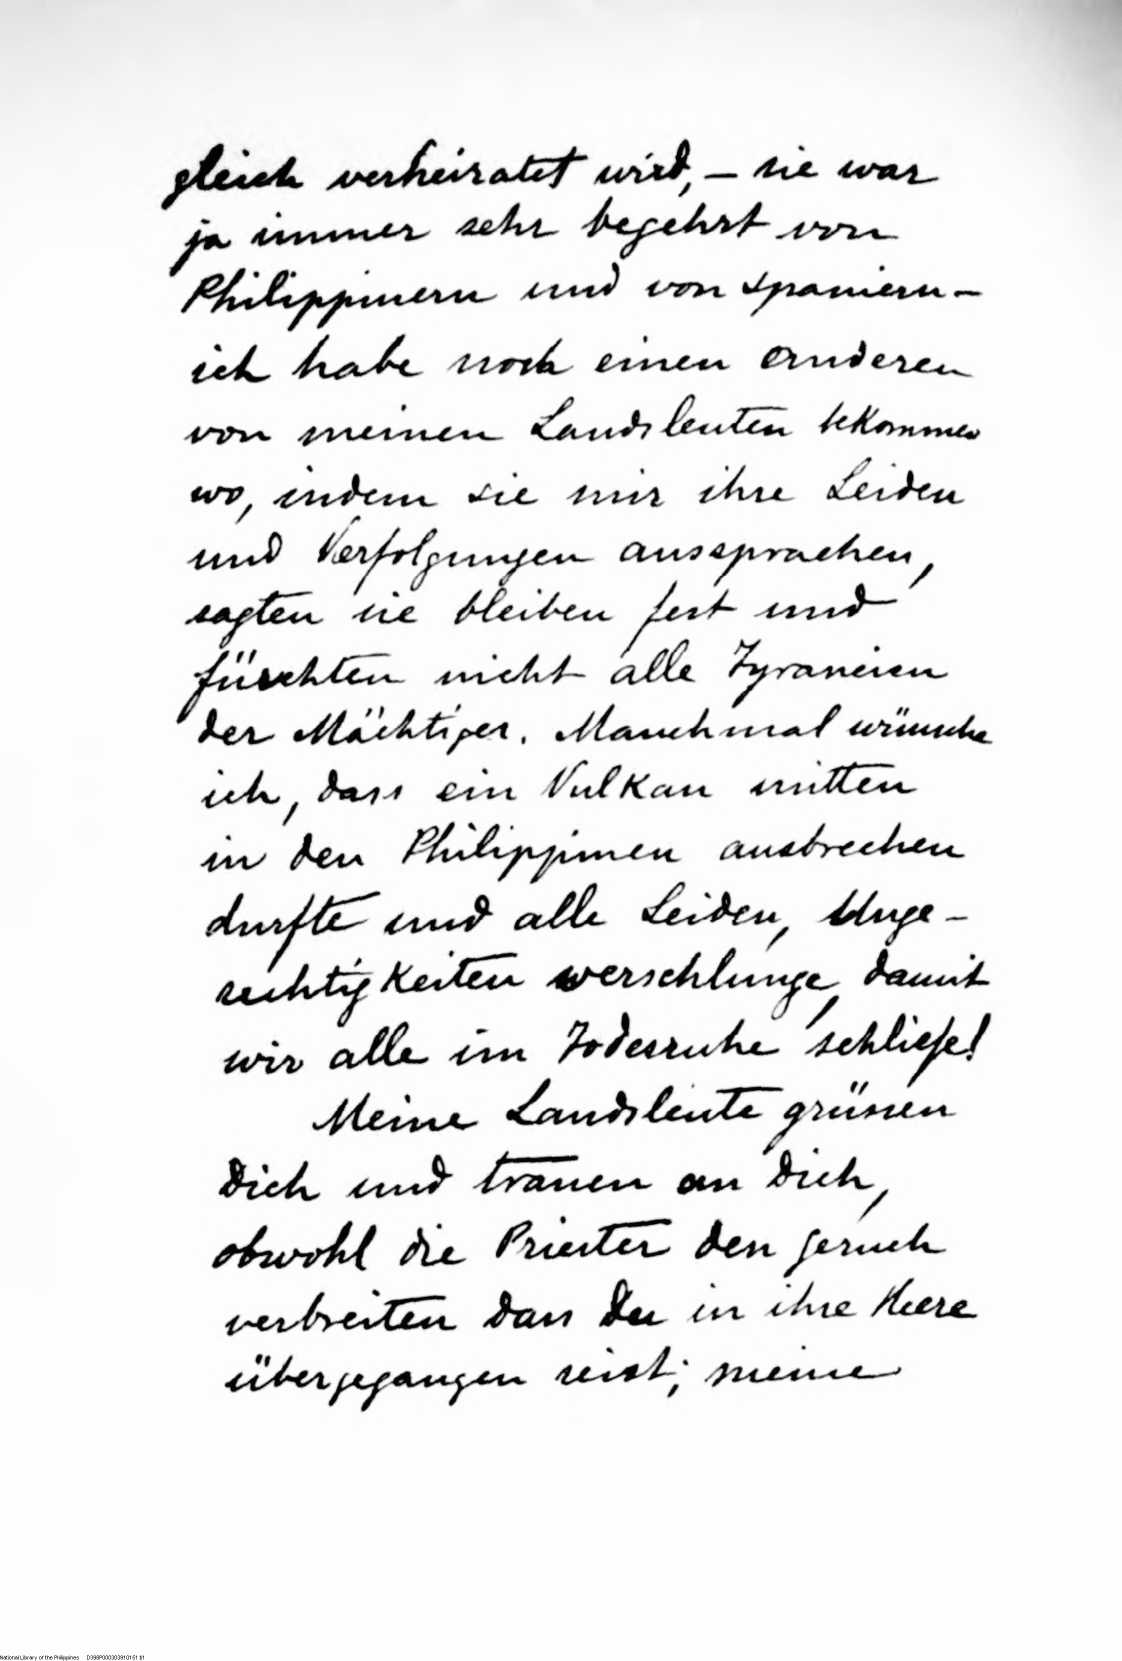 gleich verheiratet wird, – sie war
ja immer sehr begehrt von
Philippinern und von spaniern –
ich habe noch einen anderen
von meinen Landsleuten bekommen
wo, indem sie mir ihre Leiden
und Verfolgungen aussprachen,
sagten sie bleiben fest und
fürchten nicht alle Tyraneien
der Mächtiger. Manchmal wünsche
ich, dass ein Vulkan mitten
in den Philippinen ausbrechen
durfte und alle Leiden, Unge-
rechtigkeiten verschlunge, damit
wir alle im Todesruhe schliefe!
Meine Landsleute grüssen
Dich und trauen an Dich,
obwohl die Priester den geruch
verbreiten dass Du in ihre Heere
übergegangen seist; meine
National Library of the Philippines